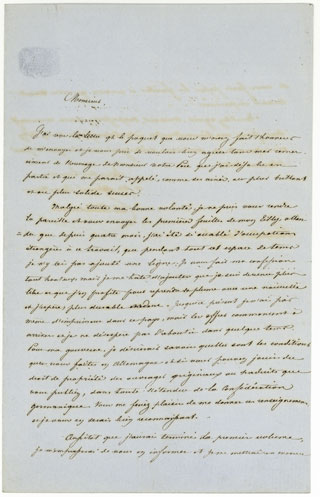 Monsieur,
J'ai reçu la lettre et le paquet que vous m'avez fait l'honneur
de m'envoyer et je vous prie de vouloir bien agréer tous mes remer-
ciments de l'ouvrage de Monsieur votre Père que j'ai déjà lu en
partie et qui me paraît appelé, comme ses aînés, au plus brillant
et au plus solide succès.
Malgré toute ma bonne volonté, je n'ai pu vous rendre
la pareille et vous envoyer les premières feuilles de mon
du que depuis quatre mois, j'ai été si accablé d'occupations
étrangères à ce travail, que pendant tout cet espace de temps
je n'y ai pas ajouté une ligne. Je vous fais ma confession
tout mais je me hâte d'ajouter que je suis devenu plus
libre et que j'en profite pour reprendre la plume avec une nouvelle
et j'espère plus durable ardeur. Jusqu'à présent je n'ai pas
même d'imprimeur dans ce pays, mais les offres commencent à
arriver et je me déciderai d'ici à quelque tems.
Pour ma gouverne, je désirerais savoir quelles sont les conditions
que vous faites en Allemagne et si vous pouvez jouir du
droit de propriété des ouvrages originaux ou traduits que
vous publiez, dans toute l'étendue de la Confédération
germanique. Vous me feriez plaisir de me donner ce renseignement
et je vous en serais bien reconnaissant.
Aussitôt que j'aurai terminé le premier volume,
je m'empresserai de vous en informer et pour mettrai en mesure